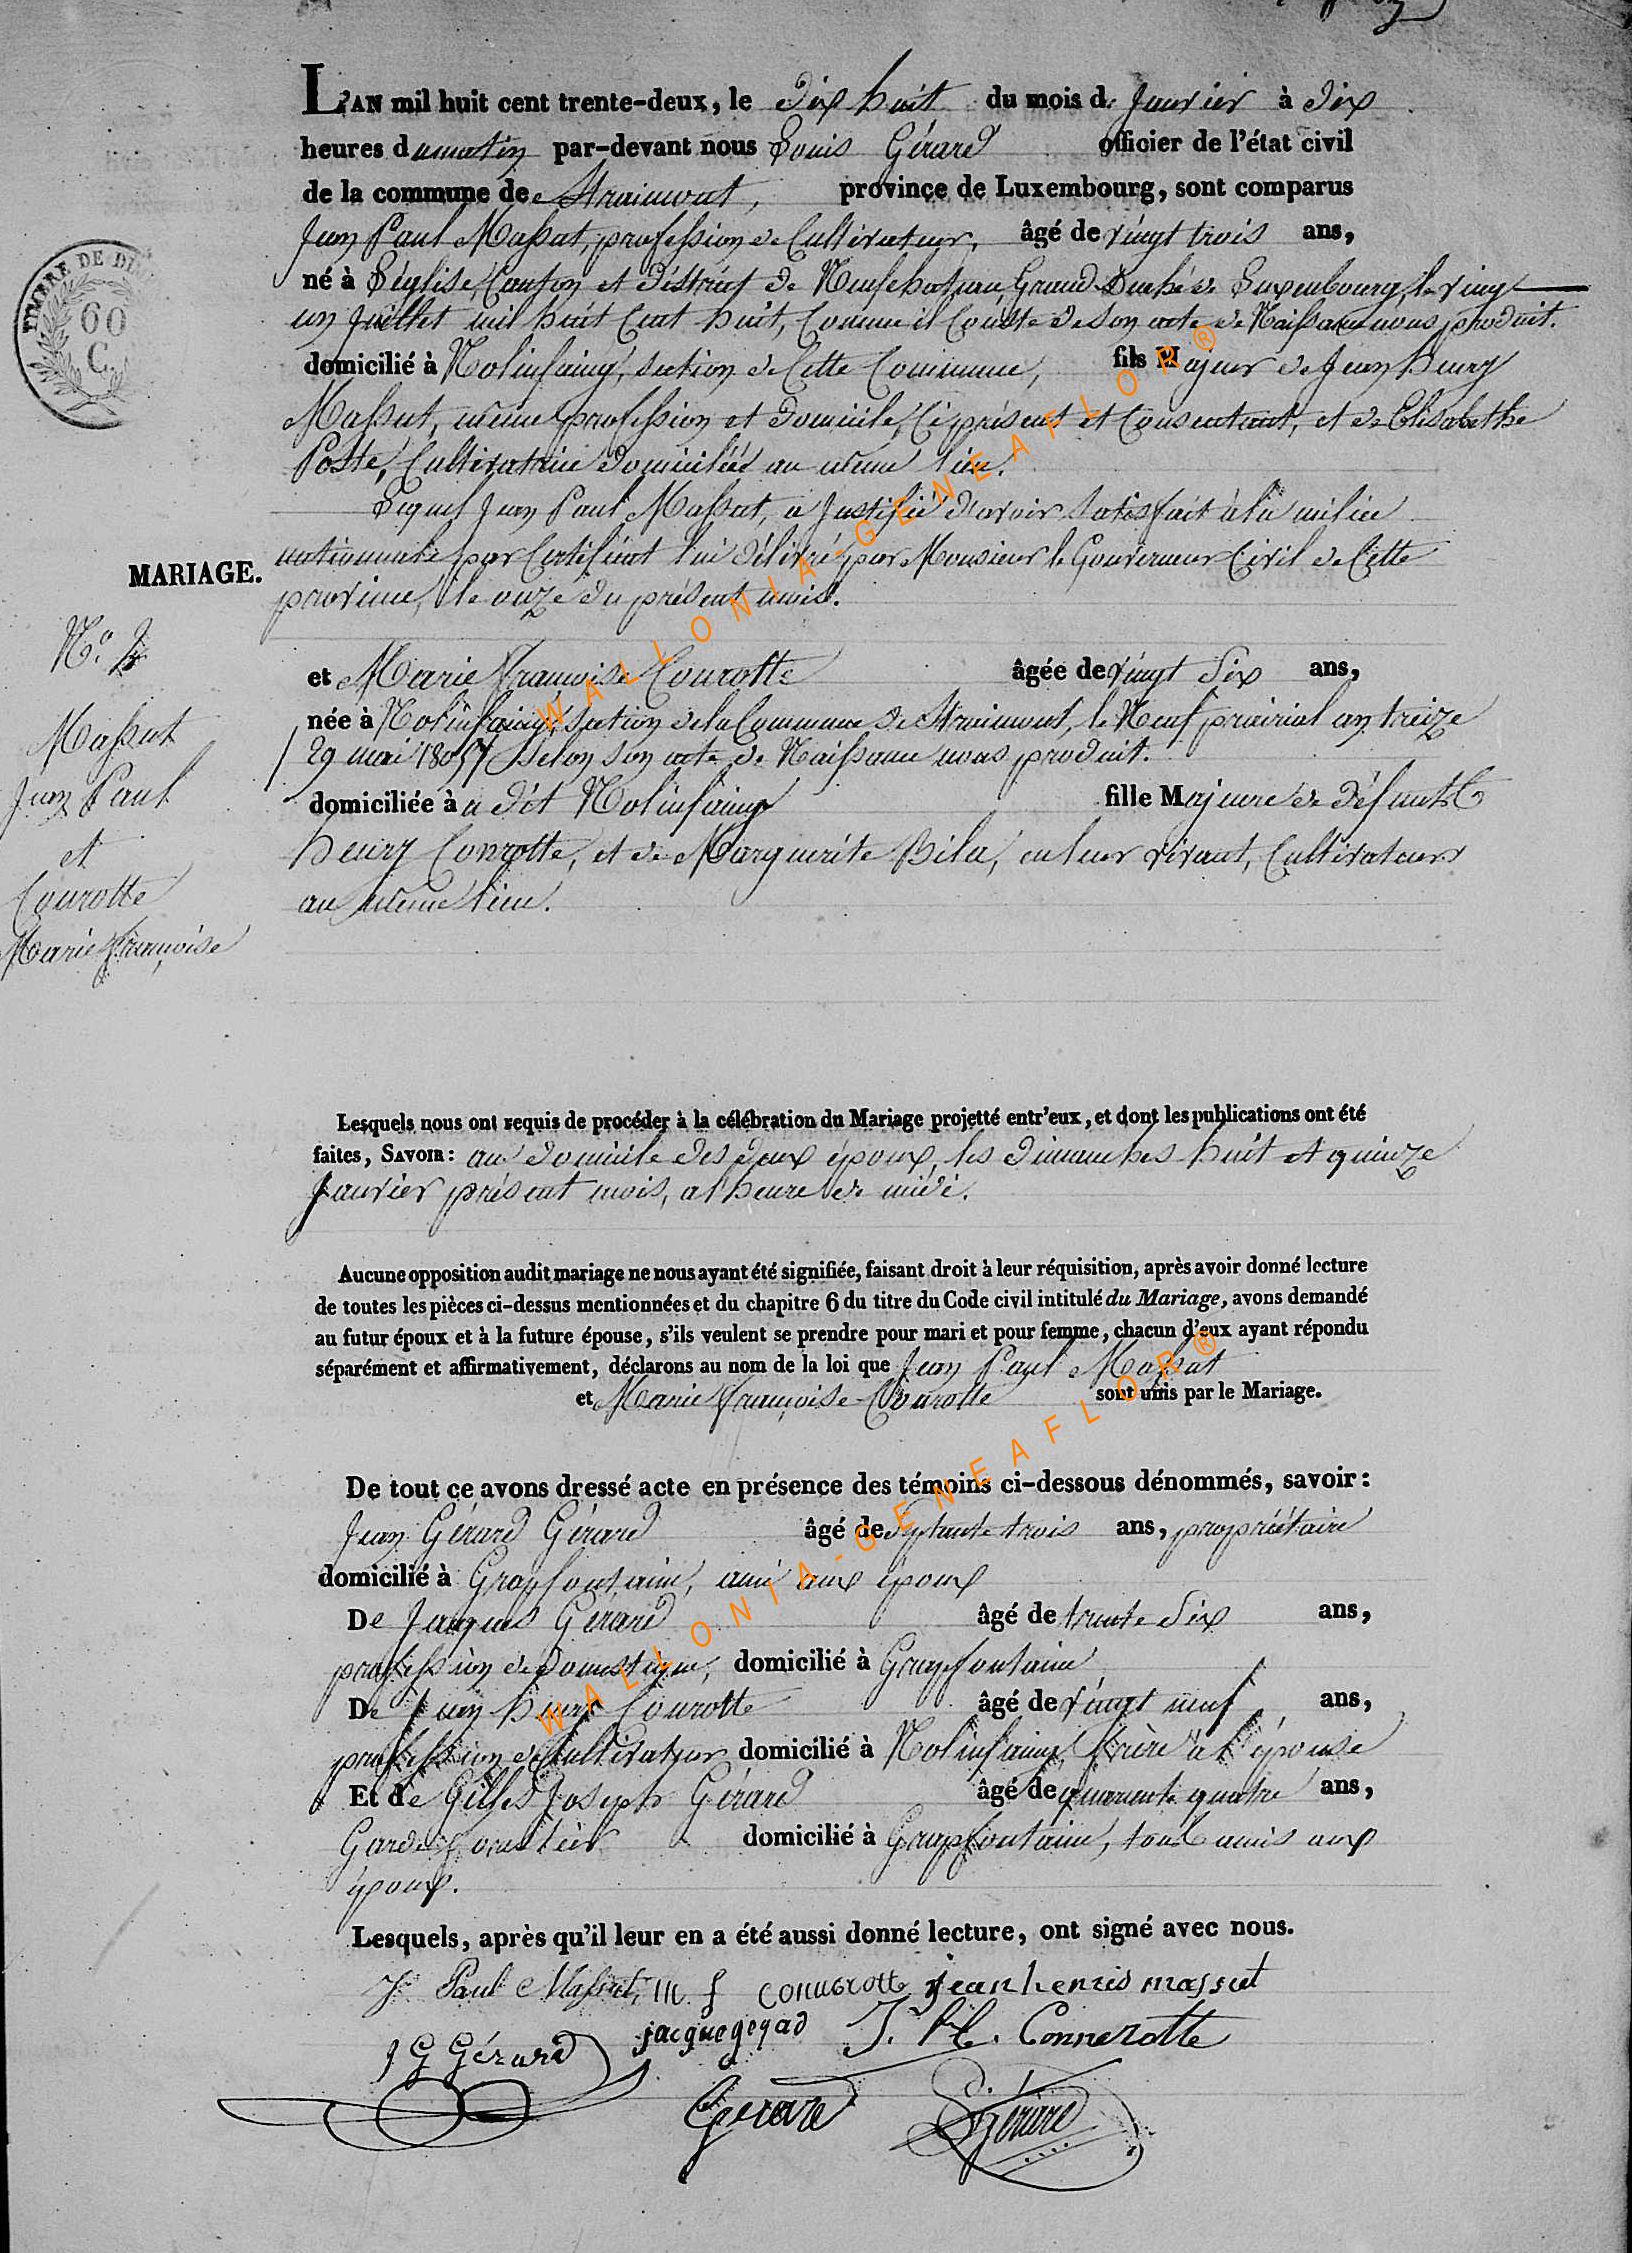 L'AN mil huit cent trente-deux, le dix huit du mois de Janvier à dix
heures du matin par-devant nous Louis Gérard officier de l'état civil
de la commune de Straimont, province de Luxembourg, sont comparus
Jean Paul Massut, profession de Cultivateur, âgé de vingt trois ans,
né à Léglise, Canton et district de Neufchateau, Grand-Duché de Luxembourg, le vingt
un Juillet mil huit Cent huit, Comme il Conste de son acte de Naissance nous produit.
domicilié à Nolinfaing, section de Cette Commune, fils Majeur de Jean henry
Massut, même profession et domicile, Ci présent et Consentant, et de Elisabethe
Poste, Cultivatrice domiciliée au même lieu.
Lequel Jean Paul Massut, a Justifié d'avoir satisfait à la milice
nationnale par Certificat lui délivré par Monsieur le Gouverneur Civil de Cette
province, le onze du présent mois.
MARIAGE.
N.o 2
Massut
Jean Paul
et
Conrotte
Marie Françoise
et Marie Françoise Conrotte âgée de vingt Six ans,
née à Nolinfaing, section de la Commune de Straimont, le Neuf prairial an treize
/29 mai 1805/ Selon son acte de Naissance nous produit.
domiciliée à a dit Nolinfaing fille Majeure de défunts
henry Conrotte, et de Marguerite Bila, en leur vivant, Cultivateurs
au même lieu.
Lesquels nous ont requis de procéder à la célébration du Mariage projetté entr'eux, et dont les publications ont été
faites, SAVOIR: au domicile des deux époux, les dimanches huit et quinze
Janvier présent mois, a l'heure de midi.
Aucune opposition audit mariage ne nous ayant été signifiée, faisant droit à leur réquisition, après avoir donné lecture
de toutes les pièces ci-dessus mentionnées et du chapitre 6 du titre du Code civil intitulé du Mariage, avons demandé
au futur époux et à la future épouse, s'ils veulent se prendre pour mari et pour femme, chacun d'eux ayant répondu
séparément et affirmativement, déclarons au nom de la loi que Jean Paul Massut
et Marie Françoise Conrotte sont unis par le Mariage.
De tout ce avons dressé acte en présence des témoins ci-dessous dénommés, savoir:
Jean Gérard Gérard âgé de septante trois ans, propriétaire
domicilié à Grapfontaine, ami aux époux
De Jacques Gérard âgé de trente Six ans,
profession de domestique, domicilié à Grapfontaine
De Jean henry Conrotte âgé de vingt neuf ans,
profession de Cultivateur domicilié à Nolinfaing, frère à l'épouse
Et de Gilles Joseph Gérard âgé de quarante quatre ans,
Garde forestier domicilié à Grapfontaine, tous amis aux
époux.
Lesquels, après qu'il leur en a été aussi donné lecture, ont signé avec nous.
Jn Paul Massut, m f conuerotte jean henris massut
J G Gérard jacque gerad J. h. Connerotte
Gerard L. Gérard
TIMBRE DE
60
C.
WALLONIA-GENEAFLOR®
WALLONIA-GENEAFLOR®